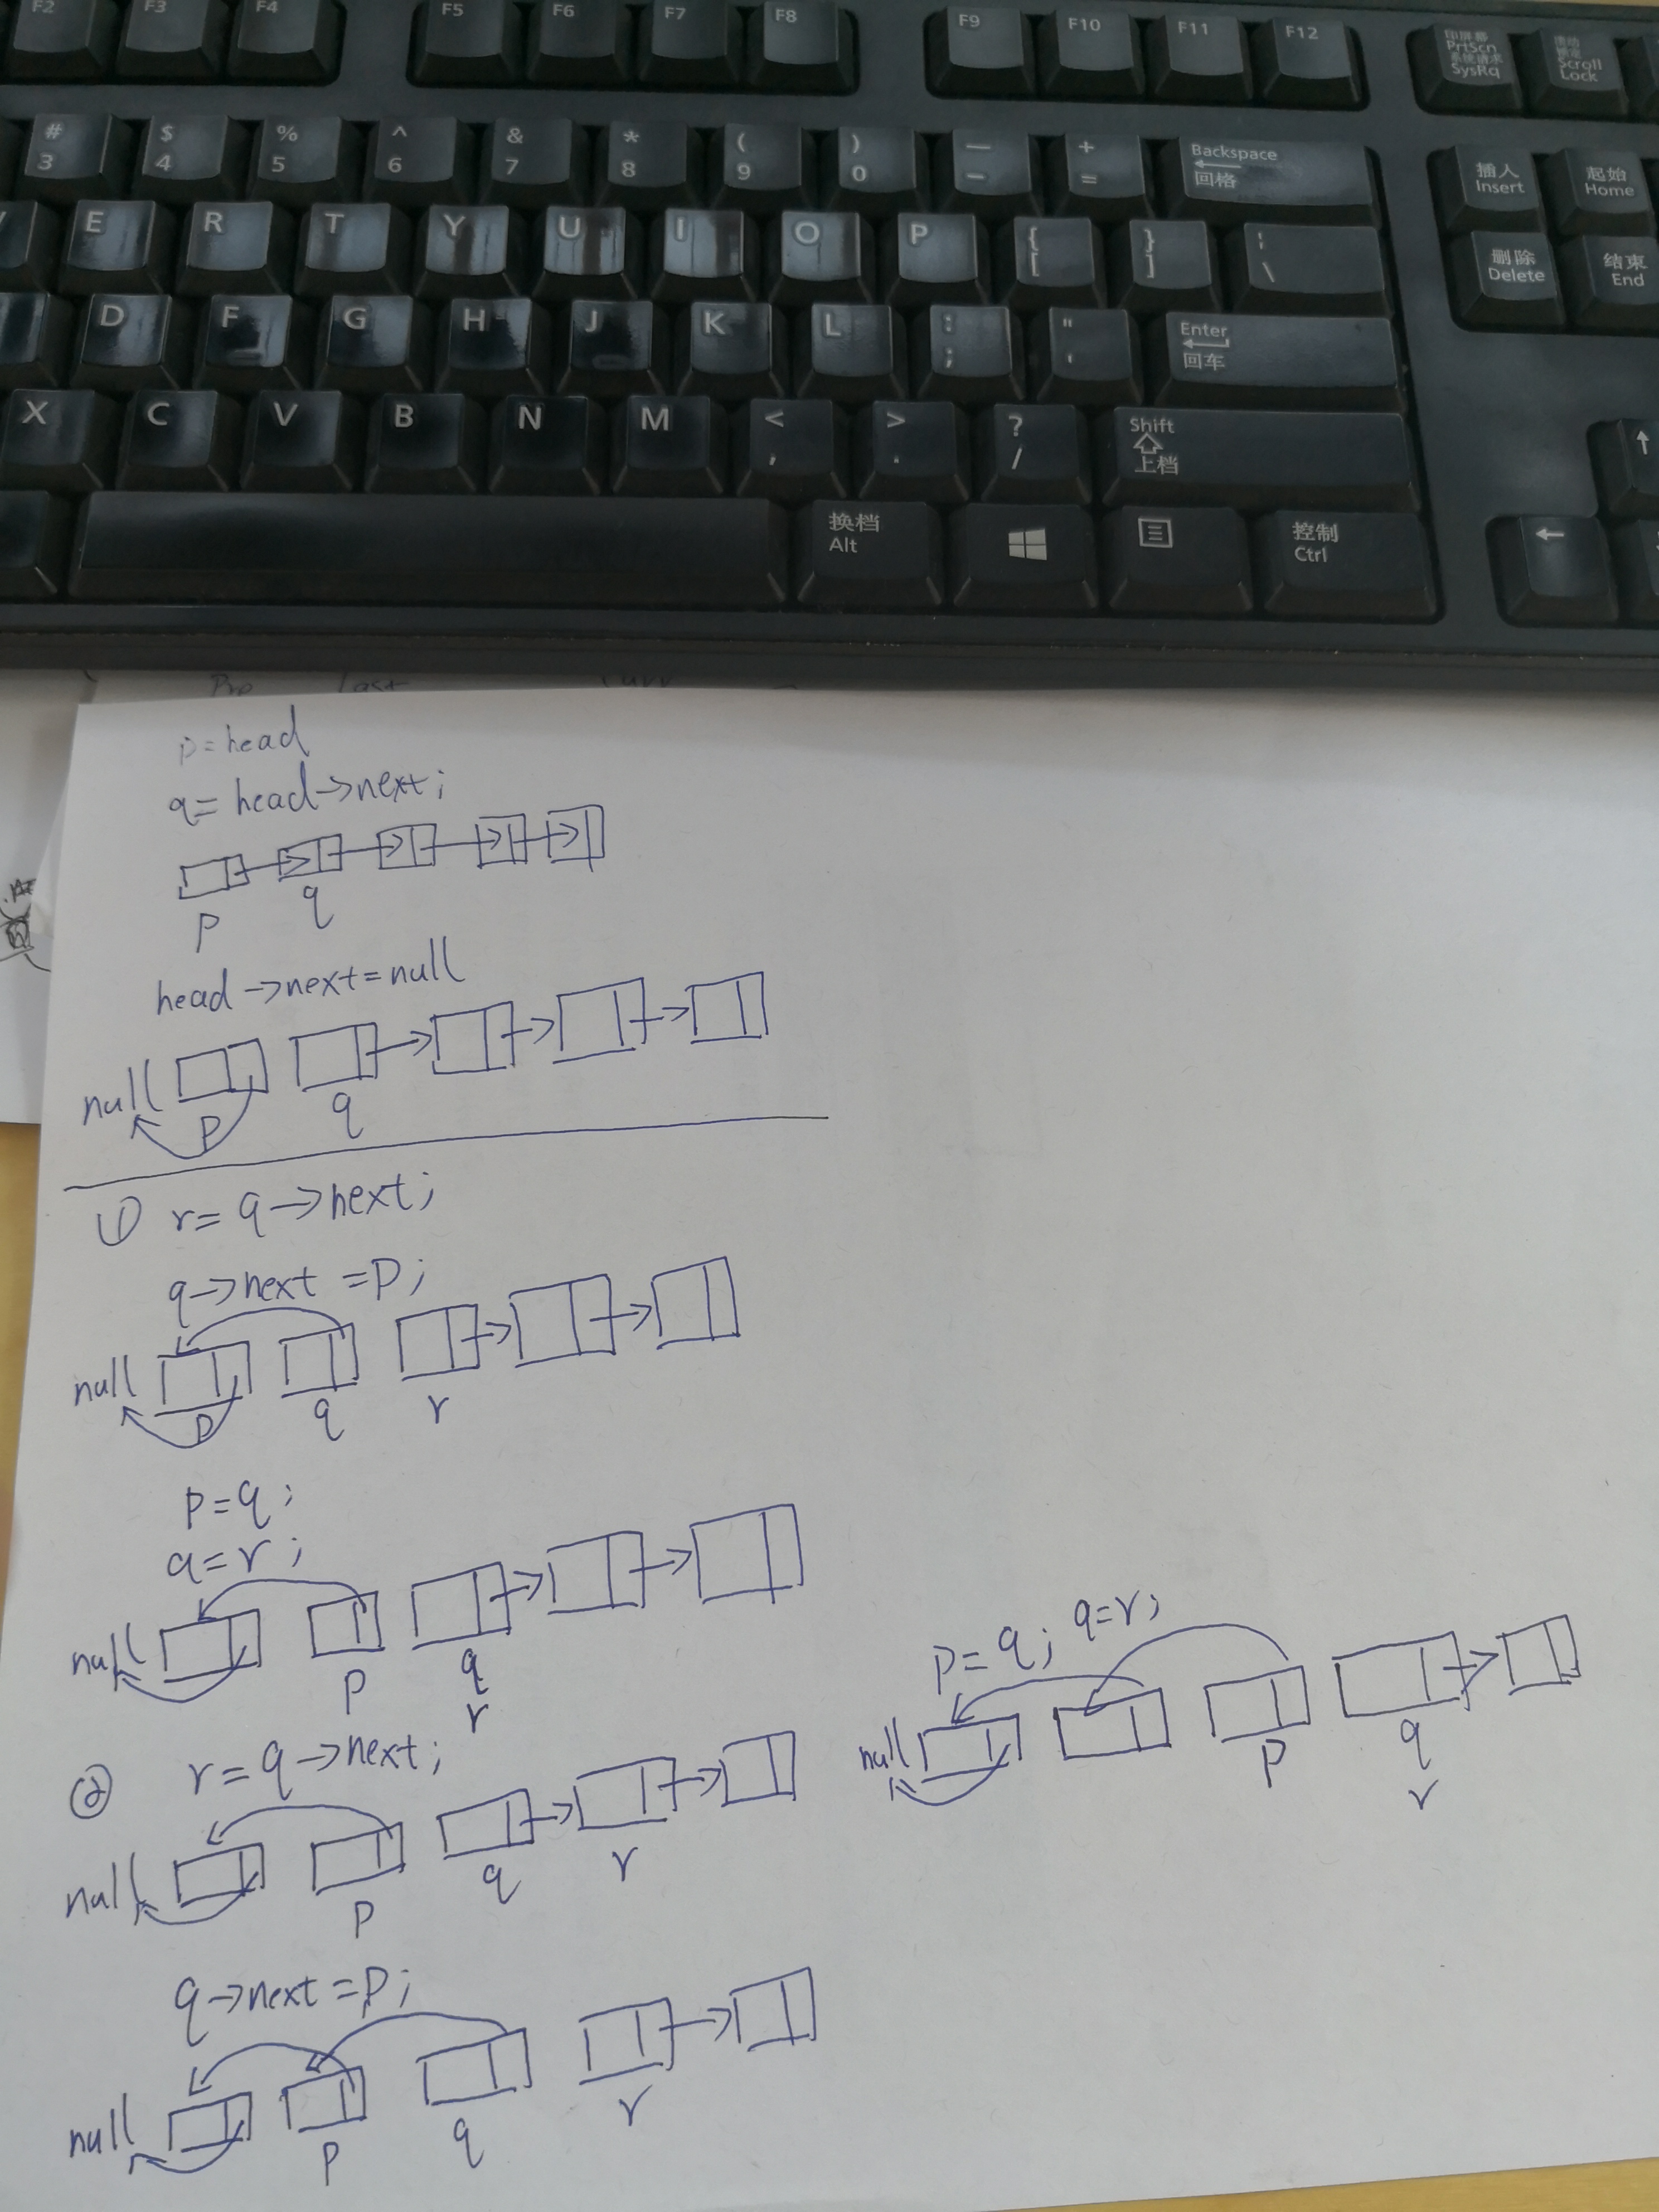 F2 F3 F4 F5 F6 F7 F8 F9 F10 F11 F12 印屏幕 PrtScn 系统请求 SysRq Scroll Lock
# 3 $ 4 % 5 ^ 6 & 7 * 8 ( 9 ) 0 — - + = Backspace 回格 插入 Insert 起始 Home
E R T Y U I O P { [ } ] ¦ \ 删除 Delete 结束 End
D F G H J K L : ; " ' Enter 回车
X C V B N M < , > . ? / Shift 上档
换档 Alt 控制 Ctrl
last
p=head
q= head->next;
p q
head->next=null
null p q
① r= q->next;
q->next =p;
null p q r
p=q;
q=r;
null p q r
p=q; q=r;
null p q r
② r=q->next;
null p q r
q->next=p;
null p q r